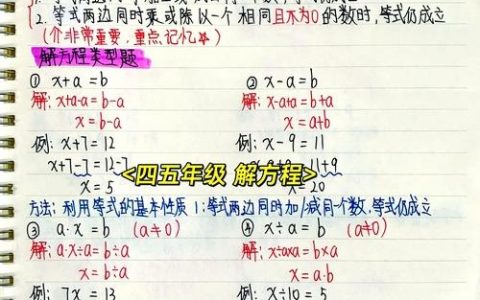 2. 等式两边同时乘或除以一个相同且不为0的数时,等式仍成立
(个非常重要,重点记忆☆)
解方程类型题
① x+a=b ② x-a=b
解: x+a-a=b-a 解: x-a+a=b+a
x=b-a x=a+b
例: x+7=12 例: x-9=11
x+7-7=12-7 11+9
x=5 x=20
<四五年级 解方程>
方法: 利用等式的基本性质1:等式两边同时加/减同个数,等式仍成立
③ a·x=b (a≠0) ④ x÷a=b (a≠0)
解: a·x÷a=b÷a 解: x÷a×a=b×a
x=b÷a x=a·b
例: 7x=13 例: x÷10=5